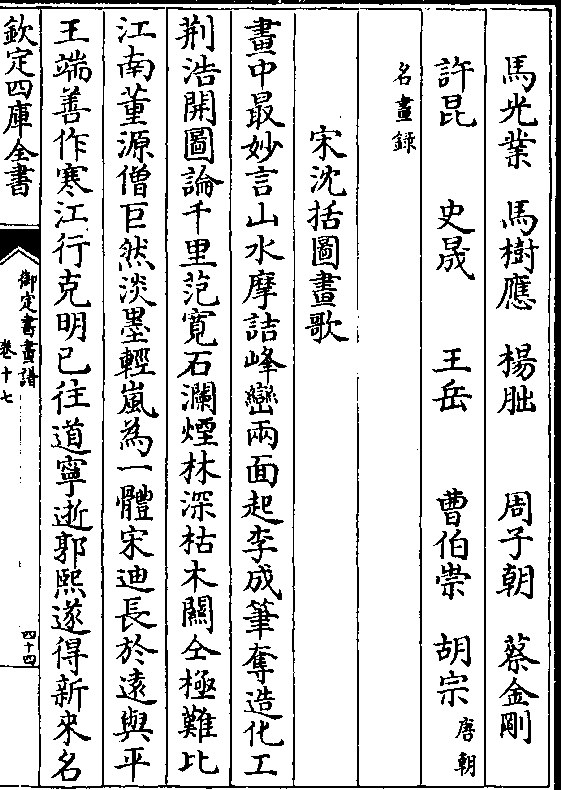 馬光業 馬樹應 楊朏 周子朝 蔡金剛
許昆 史晟 王岳 曹伯崇 胡宗 唐朝
名畫録
宋沈括圖畫歌
畫中最妙言山水摩詰峰巒兩面起李成筆奪造化工
荆浩開圖論千里范寛石瀾煙林深枯木闗仝極難比
江南董源僧巨然淡墨輕嵐為一體宋迪長於逺與平
王端善作寒江行克明已往道寧逝郭熙遂得新來名
欽定四庫全書
御定書畫譜
卷十七
四十四